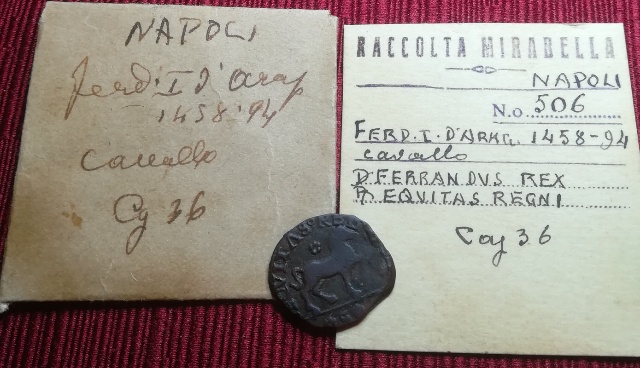 NAPOLI
Ferd. I d'Arag
1458-94
Cavallo
Cg 36
RACCOLTA MIRABELLA
NAPOLI
N.o 506
FERD. I. D'ARAG. 1458-94
cavallo
D. FERRANDVS REX
R. EQVITAS REGNI
Cag 36